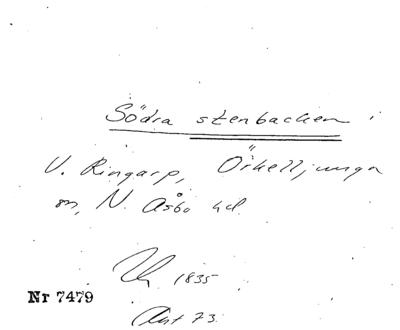 Södra stenbacken i
V. Ringarp, Örkelljunga
sn, N. Åsbo hd.
1835
Nr 7479
Ant 73.